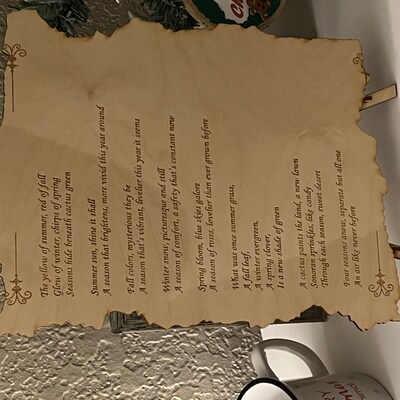 The yellow of summer, red of fall
Glow of winter, chirps of spring
Seasons hide beneath cactus green
Summer sun, shine it shall
A season that brightens, more vivid this year around
Fall colors, mysterious they be
A season that's vibrant, lovelier this year it seems
Winter snow, picturesque and still
A season of comfort, a safety that's constant now
Spring bloom, blue skies galore
A season of roses, lovelier than ever grown before
What was once summer grass,
A fall leaf,
A winter evergreen,
A spring clover,
Is a new shade of green
A cactus paints the land, a new lawn
Sonoran sprinkles, like candy
Through each season, sweet desert
Four seasons anew, separate but all one
An air like never before